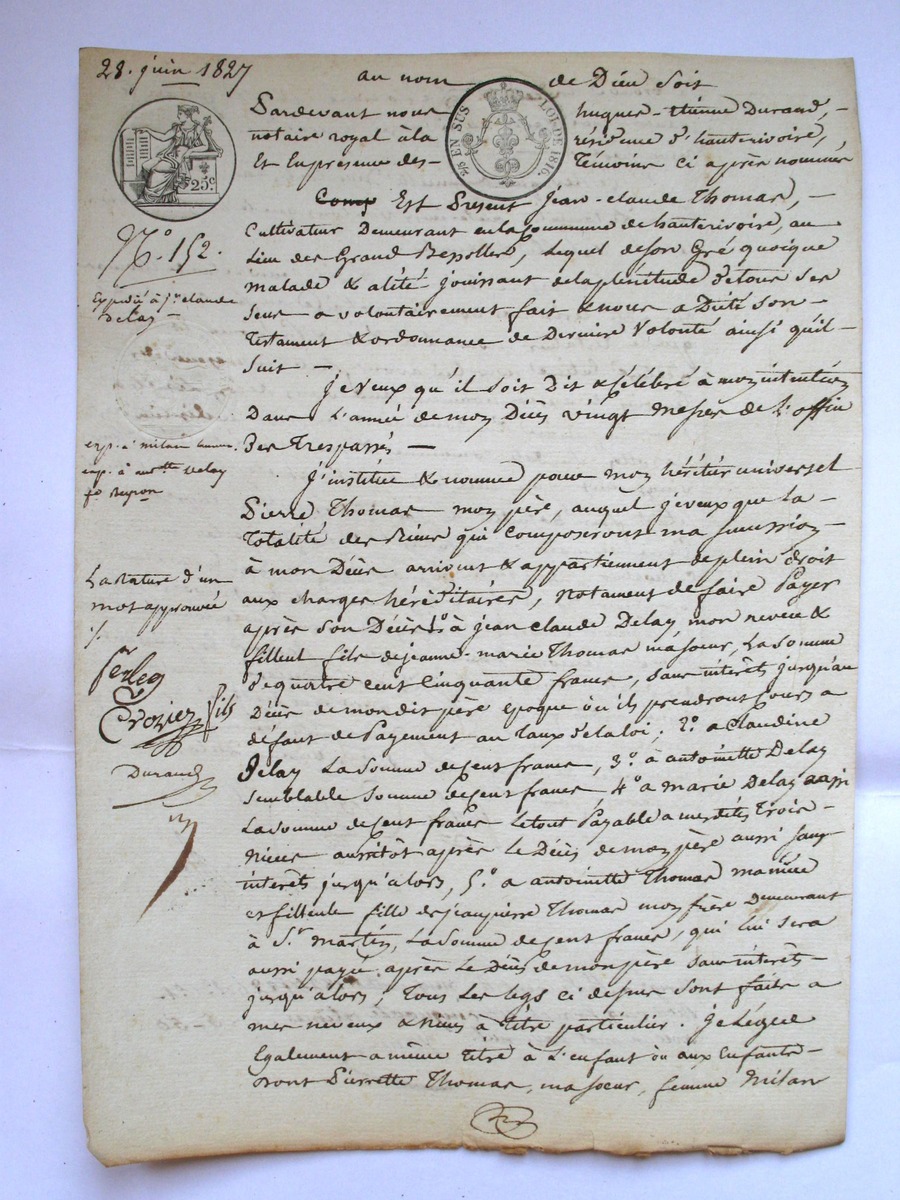 28. juin 1827
au nom de Dieu soit
Pardevant nous hugues-étienne Durand, -
notaire royal à la résidence d'hauterivoire,
Et En présence des - Témoins ci après nommés
25 EN SUS
LOI DE 1816.
25c
Comp Est Présent Jean-claude Thomas, -
Cultivateur Demeurant en la Commune de hauterivoire, au
N.o 152.
Lieu des Grand, Lequel de son Gré quoique
malade & alité jouissant de la plénitude de tous ses
Expédié à Jn. claude
Delay -
sens a volontairement fait & nous a Dicté son -
Testament & ordonnance de Dernière Volonté ainsi qu'il -
Suit -
Je Veux qu'il soit Dit & Célébré à mon intention
Dans L'année de mon Décès vingt Messes de L'office
Des Trespassés -
exp. à milan
exp. à antte. Delay
fe.
J'institue & nomme pour mon héritier universel
Pierre Thomas mon père, auquel je veux que la -
Totalité des Biens qui Composeront ma succession -
à mon Décès arrivent & appartiennent de plein droit
La Rature d'un
mot approuvée
aux charges héréditaires, notament de faire Payer
après son Décès 1.o à jean claude Delay mon neveu &
filleul fils de jeanne-marie Thomas ma soeur, La somme
de quatre cent Cinquante francs, sans intérêts jusqu'au
Décès de mon dit père époque où ils prendront Cours a
Crozier fils
défaut de Payement au Taux de la loi; 2.o a Claudine
Durand
Delay La Somme de Cent francs, 3.o à antoinette Delay
semblable somme de Cent francs 4.o a Marie Delay aussi
La Somme de Cent francs Le tout Payable a mes dites Trois -
Nièces aussitôt après Le Décès de mon père aussi sans
intérêts jusqu'alors, 5.o a antoinette Thomas ma nièce
et filleule fille de jeanpierre Thomas mon frère Demeurant
à St. martin, La Somme de Cent francs, qui lui sera
aussi payée après Le Décès de mon père sans intérêts -
jusqu'alors, Tous Les legs ci dessus sont faits a
mes neveux & nièces à Titre particulier. Je Lègue
Egalement a même Titre à L'enfant ou aux Enfants -
dont Pierrette Thomas, ma soeur, femme Milan